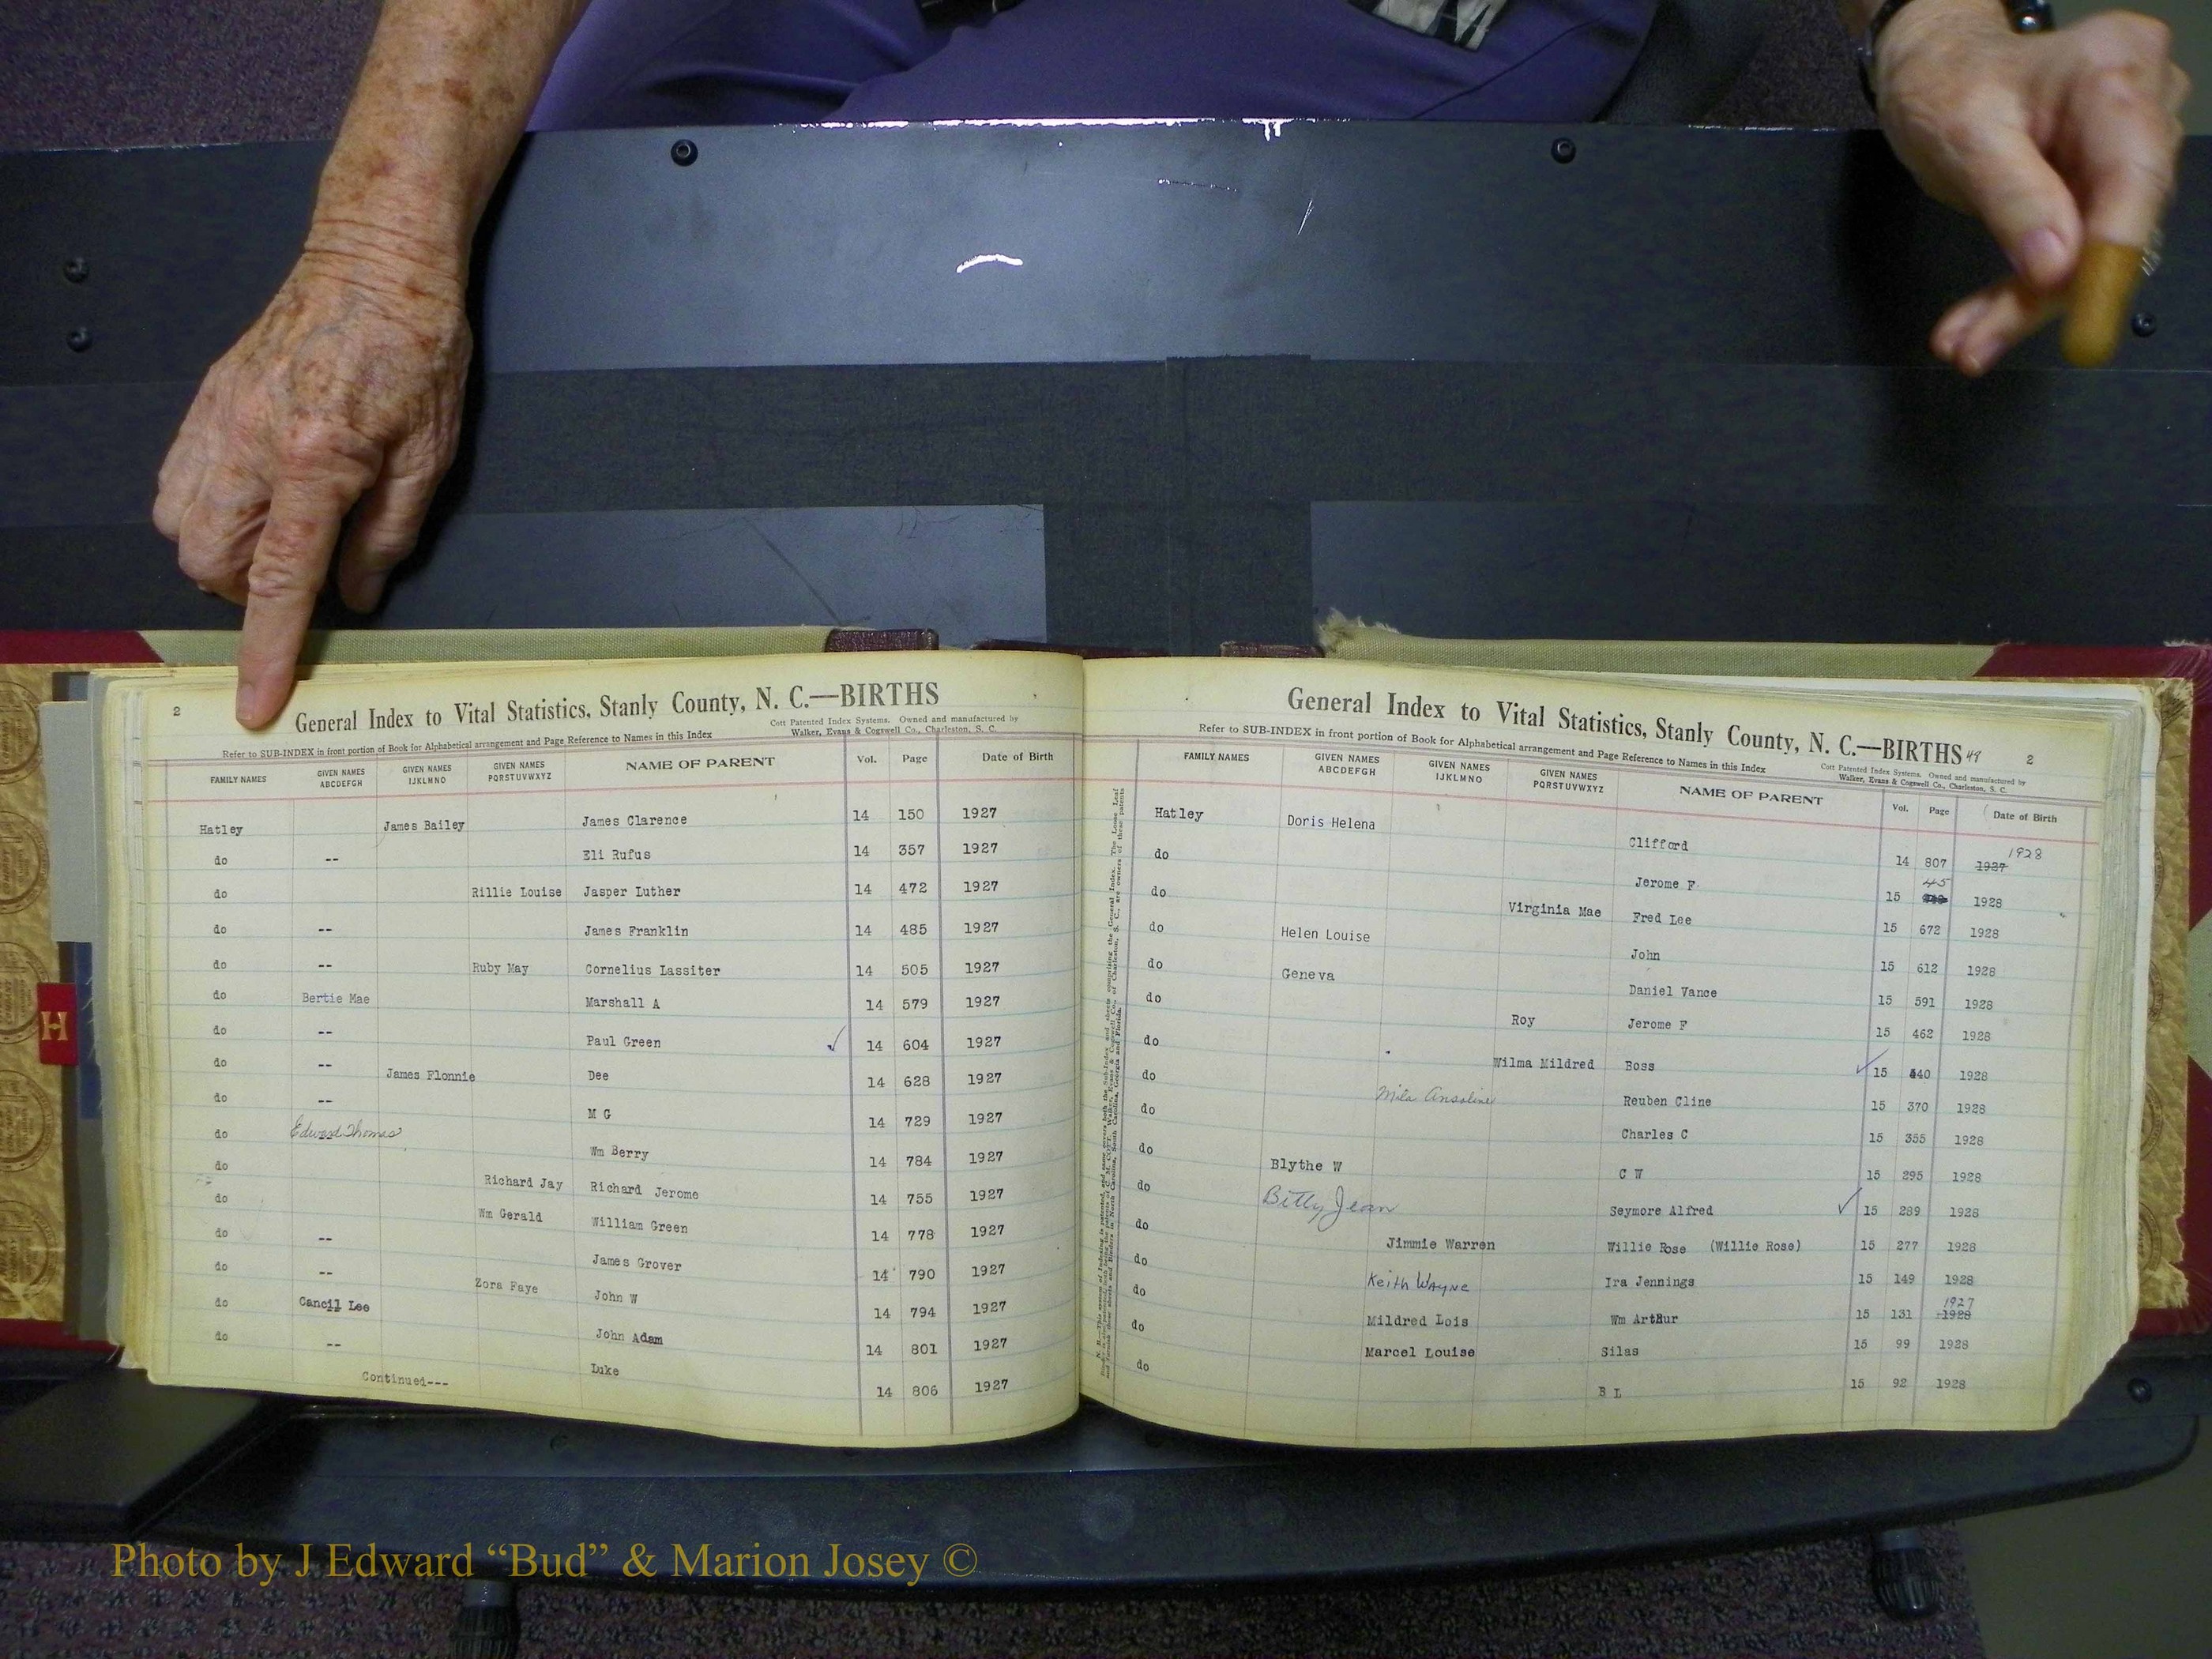 2
General Index to Vital Statistics, Stanly County, N. C.—BIRTHS
Cott Patented Index Systems. Owned and manufactured by
Walker, Evans & Cogswell Co., Charleston, S. C.
Refer to SUB-INDEX in front portion of Book for Alphabetical arrangement and Page Reference to Names in this Index
FAMILY NAMES GIVEN NAMES ABCDEFGH GIVEN NAMES IJKLMNO GIVEN NAMES PQRSTUVWXYZ NAME OF PARENT Vol. Page Date of Birth
Hatley James Bailey James Clarence 14 150 1927
do -- Eli Rufus 14 357 1927
do Rillie Louise Jasper Luther 14 472 1927
do -- James Franklin 14 485 1927
do -- Ruby May Cornelius Lassiter 14 505 1927
do Bertie Mae Marshall A 14 579 1927
do -- Paul Green ✓ 14 604 1927
do -- James Flonnie Dee 14 628 1927
do -- M G 14 729 1927
do Edward Thomas Wm Berry 14 784 1927
do Richard Jay Richard Jerome 14 755 1927
do Wm Gerald William Green 14 778 1927
do -- James Grover 14 790 1927
do -- Zora Faye John W 14 794 1927
do Cancil Lee John Adam 14 801 1927
do -- Luke 14 806 1927
Continued---
General Index to Vital Statistics, Stanly County, N. C.—BIRTHS 48 2
Cott Patented Index Systems. Owned and manufactured by
Walker, Evans & Cogswell Co., Charleston, S. C.
Refer to SUB-INDEX in front portion of Book for Alphabetical arrangement and Page Reference to Names in this Index
FAMILY NAMES GIVEN NAMES ABCDEFGH GIVEN NAMES IJKLMNO GIVEN NAMES PQRSTUVWXYZ NAME OF PARENT Vol. Page Date of Birth
Hatley Doris Helena Clifford 14 807 1927 1928
do Jerome F 15 45 1928
do Virginia Mae Fred Lee 15 672 1928
do Helen Louise John 15 612 1928
do Geneva Daniel Vance 15 591 1928
do Roy Jerome F 15 462 1928
do Wilma Mildred Boss ✓ 15 440 1928
do Mila Ansoline Reuben Cline 15 370 1928
do Charles C 15 355 1928
do Blythe W C W 15 295 1928
do Betty Jean Seymore Alfred ✓ 15 289 1928
do Jimmie Warren Willie Rose (Willie Rose) 15 277 1928
do Keith Wayne Ira Jennings 15 149 1928
do Mildred Lois Wm Arthur 15 131 1928 1927
do Marcel Louise Silas 15 99 1928
do B L 15 92 1928
H
Photo by J Edward “Bud” & Marion Josey ©